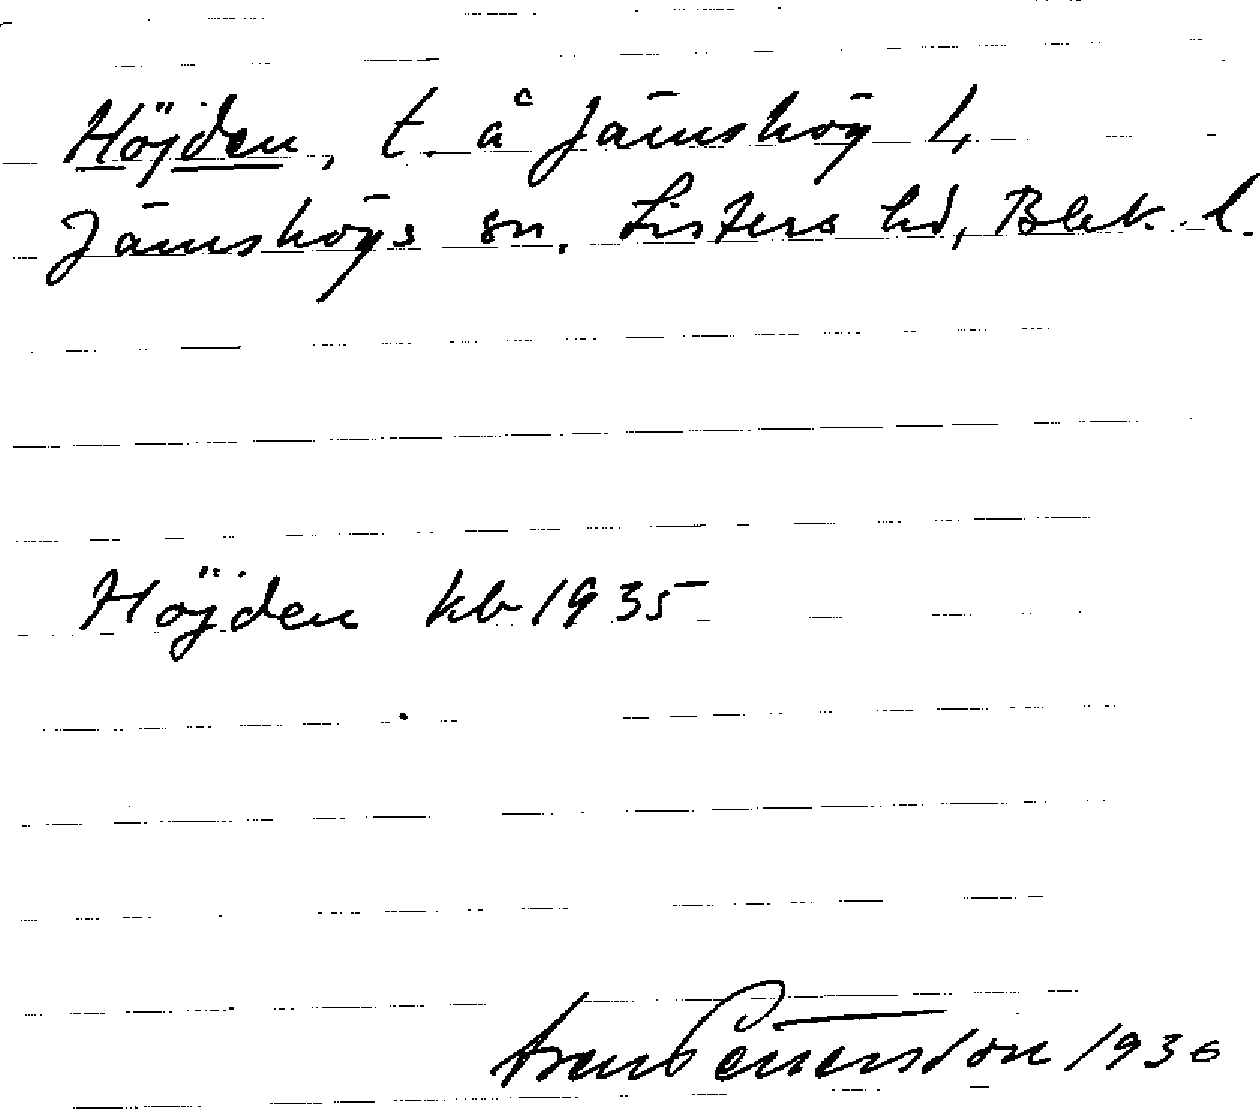 Höjden, t. å Jämshög 4
Jämshögs sn. Listers hd, Blek. l.
Höjden kb 1935
Pettersson 1936